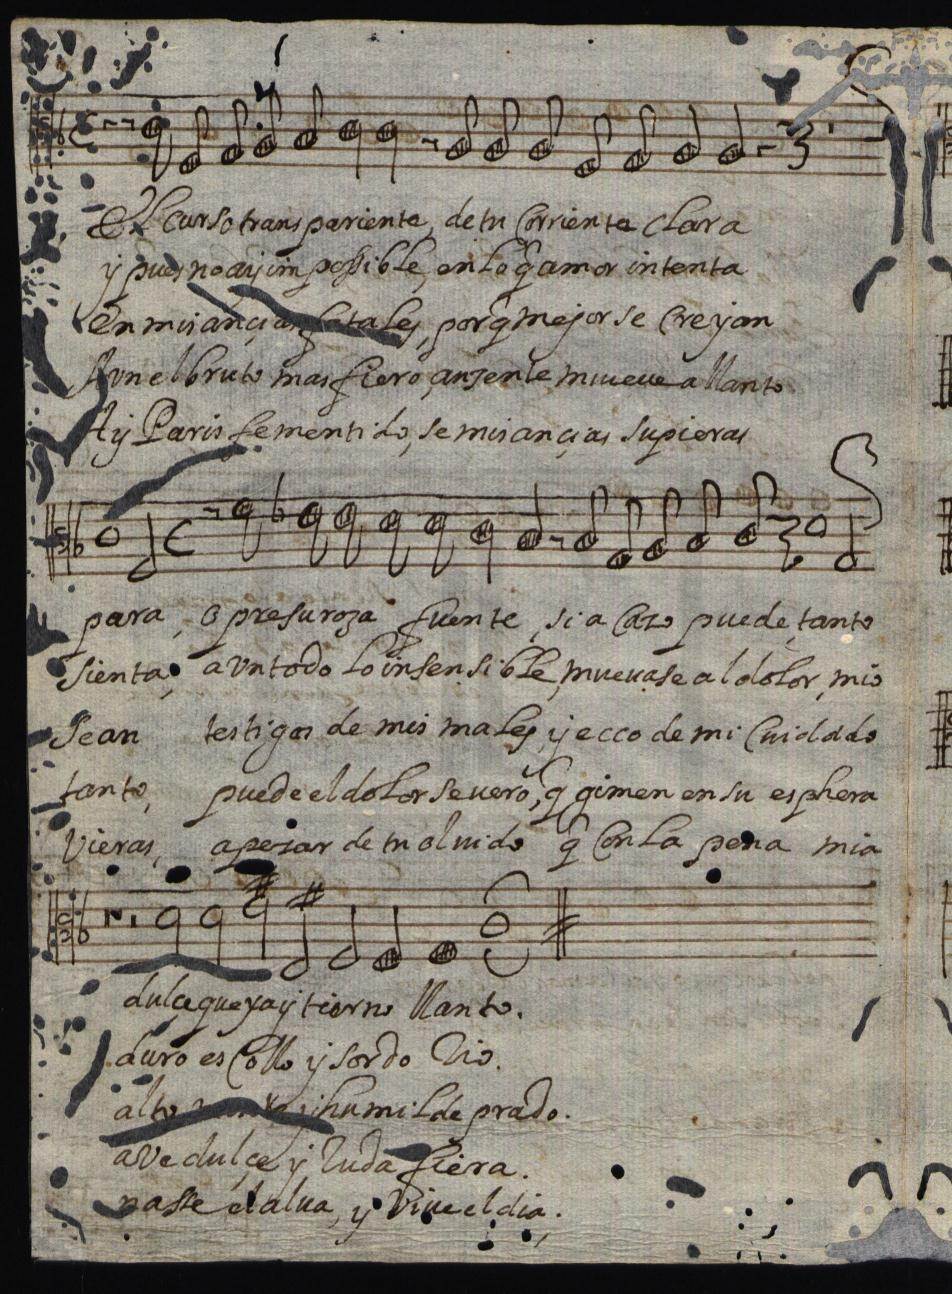 El curso transpariente, de tu Corriente Clara
y pues no ay impossible, en lo q̃ amor intenta
En mis ançias fatales, porq̃ mejor se Creyan
Avn el bruto mas fiero, auzente mueue a llanto
Ay Paris fementido, se mis ançias supieras
para, o presuroza fuente, si a Cazo puede, tanto
Sienta, avn todo lo insensible, mueuase al dolor, mio
Sean testigos de mis males, y ecco de mi Cuidado
tanto, puede el dolor seuero, q̃ gimen en su esphera
Vieras, a pezar de tu oluido q̃ Con la pena mia
dulce quexa y tierno llanto.
duro es Collo y sordo Rio.
alto y humilde prado.
ave dulçe y Ruda fiera.
nasse el alua, y Viue el dia.